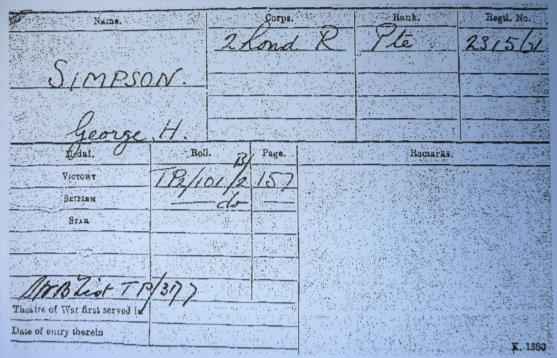 Name. Corps. Rank. Regtl. No.
2 Lond R Pte 2315/21
SIMPSON.
George H.
Medal. Roll. Page. Remarks.
VICTORY TP2/101 B/2 157
BRITISH do
STAR
List TP/377
Theatre of War first served in
Date of entry therein
K. 1380